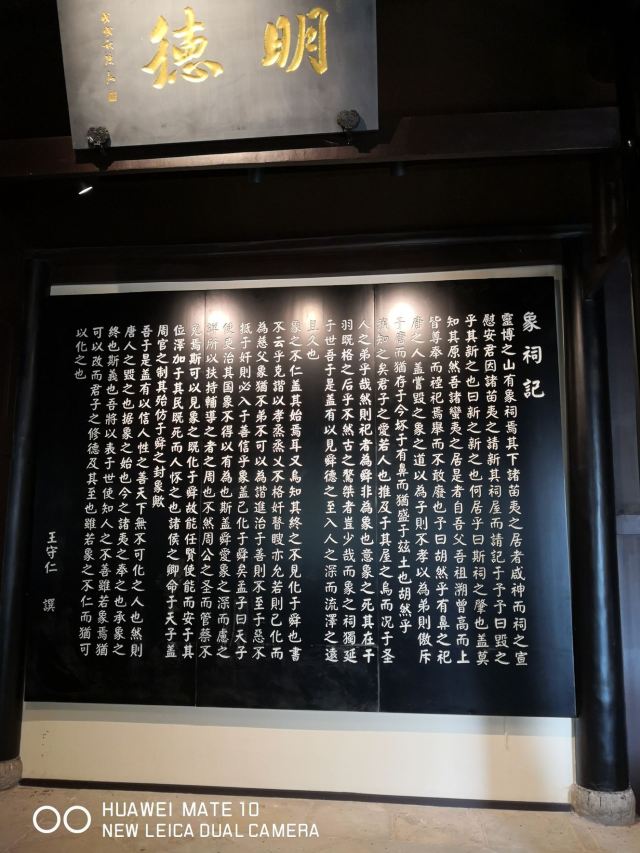 明德
象祠記
靈博之山有象祠焉其下諸苗夷之居者咸神而祠之宣
慰安君因諸苗夷之請新其祠屋而請記于予予曰毀之
乎其新之也曰新之新之也何居乎曰斯祠之肇也蓋莫
知其原然吾諸蠻夷之居是者自吾父吾祖溯曾高而上
皆尊奉而禋祀焉舉而不敢廢也予曰胡然乎有鼻之祀
唐之人蓋嘗毀之象之道以為子則不孝以為弟則傲斥
于唐而猶存于今坏于有鼻而猶盛于茲土也胡然乎
我知之矣君子之愛若人也推及于其屋之烏而况于圣
人之弟乎哉然則祀者為舜非為象也意象之死其在干
羽既格之后乎不然古之驁桀者豈少哉而象之祠獨延
于世吾于是蓋有以見舜德之至入人之深而流澤之遠
且久也
象之不仁蓋其始焉耳又烏知其終之不見化于舜也書
不云乎克諧以孝烝烝乂不格奸瞽瞍亦允若則已化而
為慈父象猶不弟不可以為諧進治于善則不至于惡不
抵于奸則必入于善信乎象蓋已化于舜矣孟子曰天子
使吏治其国象不得以有為也斯蓋舜愛象之深而慮之
詳所以扶持輔導之者之周也不然周公之圣而管蔡不
免焉斯可以見象之既化于舜故能任賢使能而安于其
位澤加于其民既死而人怀之也諸侯之卿命于天子蓋
周官之制其殆仿于舜之封象歟
吾于是蓋有以信人性之善天下無不可化之人也然則
唐人之毀之也据象之始也今之諸夷之奉之也承象之
終也斯義也吾將以表于世使知人之不善雖若象焉猶
可以改而君子之修德及其至也雖若象之不仁而猶可
以化之也
王守仁 撰
HUAWEI MATE 10
NEW LEICA DUAL CAMERA